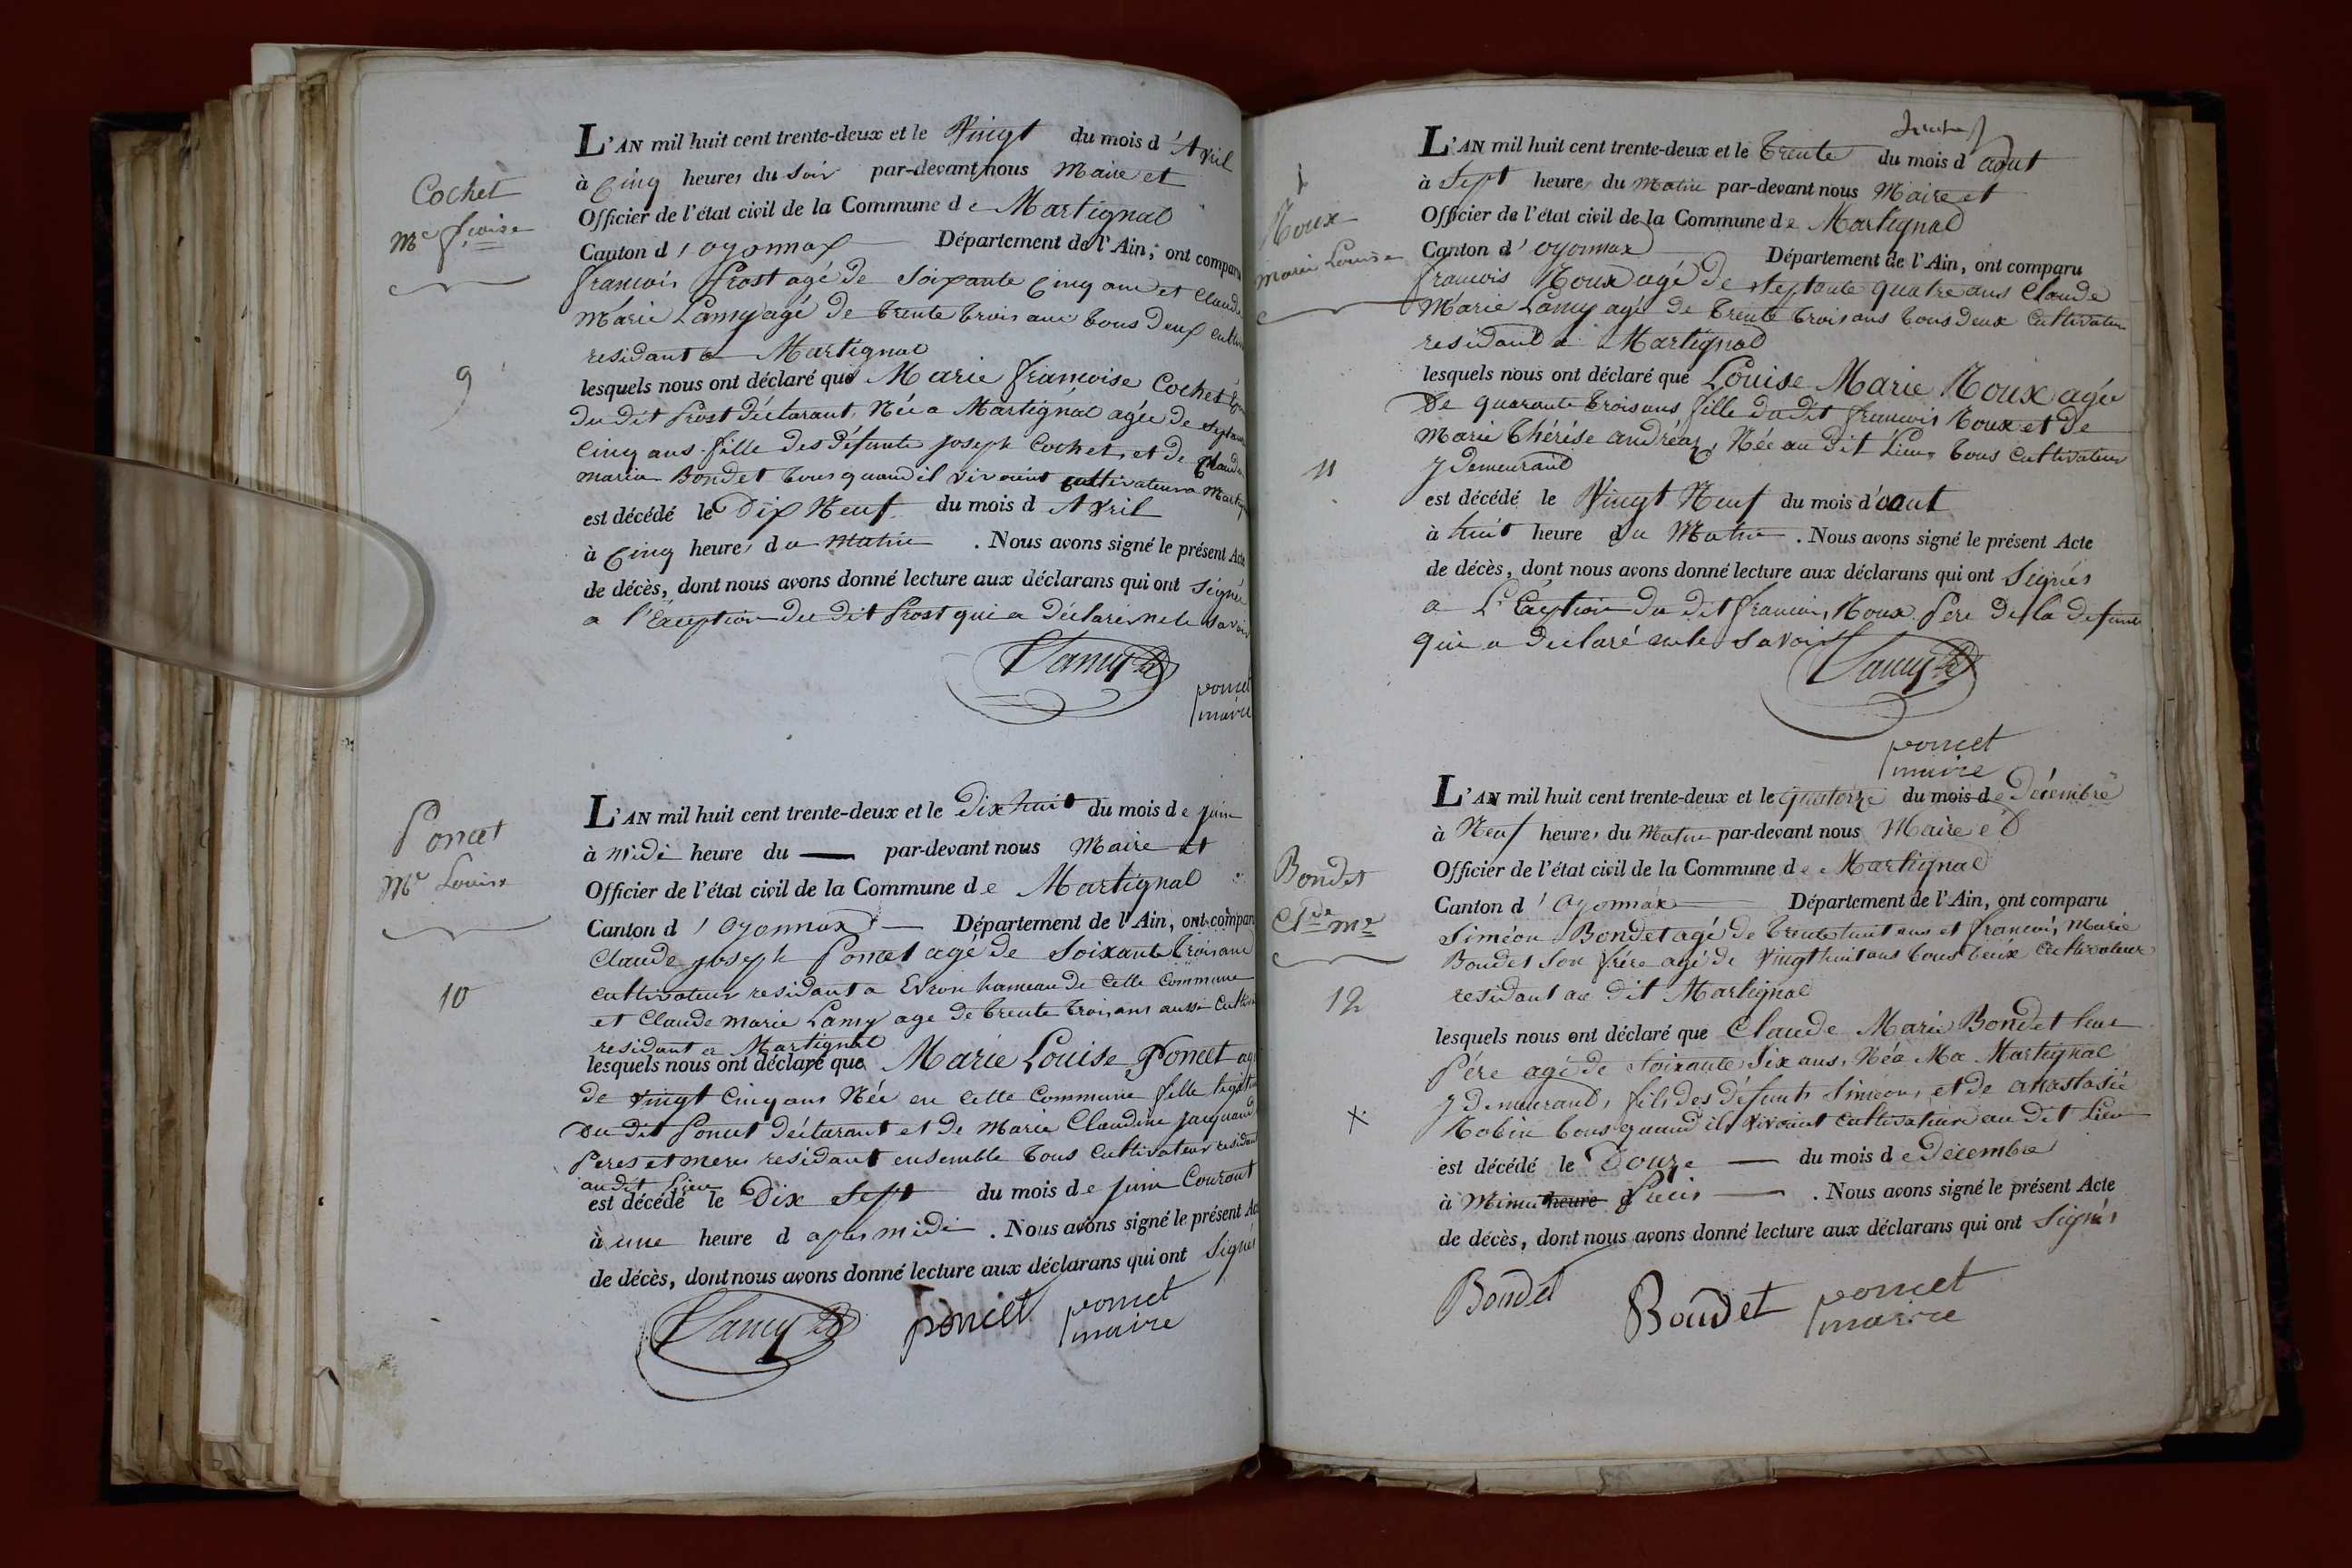 Cochet
Me fçoise
9
L'AN mil huit cent trente-deux et le Vingt du mois d'Avril
à Cinq heures du Soir par-devant nous Maire et
Officier de l'état civil de la Commune de Martignat
Canton d'oyonnax Département de l'Ain; ont comparu
francois Prost agé de Soixante Cinq ans et Claude
Marie Lamy agé de trente trois ans tous deux cultiv
residant a Martignat
lesquels nous ont déclaré que Marie francoise Cochet
du dit Prost Déclarant, Née a Martignat agée de septante
Cinq ans fille des défunts joseph Cochet, et de Claudine
maria Bondet tous quand il vivoint cultivateur a Martig
est décédé le Dix Neuf du mois d Avril
à Cinq heures du matin . Nous avons signé le présent Acte
de décès, dont nous avons donné lecture aux déclarans qui ont signés
a l'Exception du dit Prost qui a déclaré ne le savoir
Lamy
poncet
maire
Poncet
Me Louise
10
L'AN mil huit cent trente-deux et le Dix huit du mois de juin
à Midi heure du — par-devant nous Maire et
Officier de l'état civil de la Commune de Martignat
Canton d'oyonnax Département de l'Ain, ont comparu
Claude joseph Poncet agé de Soixante trois ans
cultivateur residant a Evron hameau de Cette Commune
et Claude marie Lamy age de trente trois ans aussi Cultiv
residant a Martignat
lesquels nous ont déclaré que Marie Louise Poncet ag
de vingt Cinq ans Née en Cette Commune fille legit
du dit Poncet Déclarant et de Marie Claudine jacquand
Peres et meres residant ensemble tous Cultivateur residant
au dit Lieu
est décédé le Dix Sept du mois de juin Courant
à une heure d apres midi . Nous avons signé le présent Acte
de décès, dont nous avons donné lecture aux déclarans qui ont Signés
Lamy poncet poncet
maire
Roux
marie Louise
11
L'AN mil huit cent trente-deux et le trente du mois d aout
à Sept heure du Matin par-devant nous Maire et
Officier de l'état civil de la Commune de Martignat
Canton d'oyonnax Département de l'Ain, ont comparu
francois Roux agé de septante quatre ans Claude
Marie Lamy age de trente trois ans tous deux Cultivateur
residant a Martignat
lesquels nous ont déclaré que Louise Marie Roux agée
De quarante trois ans fille du dit francois Roux et de
Marie thérèse andréaz, Née au dit Lieu, tous Cultivateur
y demeurant
est décédé le Vingt Neuf du mois d'aout
à huit heure du Matin . Nous avons signé le présent Acte
de décès, dont nous avons donné lecture aux déclarans qui ont Signés
a L'Exeption du dit francois Roux Pere de la defunte
qui a declaré ne le savoir
Lamy
poncet
maire
Bondet
Cl de me
12
X
L'AN mil huit cent trente-deux et le quatorze du mois de Décembre
à Neuf heures du Matin par-devant nous Maire et
Officier de l'état civil de la Commune de Martignat
Canton d'oyonnax Département de l'Ain, ont comparu
Siméon Bondet agé de trente huit ans et francois Marie
Bondet Son frère agé de vingt huit ans tous deux Cultivateur
residant au dit Martignat
lesquels nous ont déclaré que Claude Marie Bondet leur
Père agé de Soixante Six ans, Né a Ma Martignat
y demeurant, fils des défunts Simeon, et de anastasie
Robin tous quand ils vivoint cultivateur au dit Lieu
est décédé le Douze — du mois de Decembre
à Minui heure Précis — . Nous avons signé le présent Acte
de décès, dont nous avons donné lecture aux déclarans qui ont Signés
Bondet Bondet poncet
maire